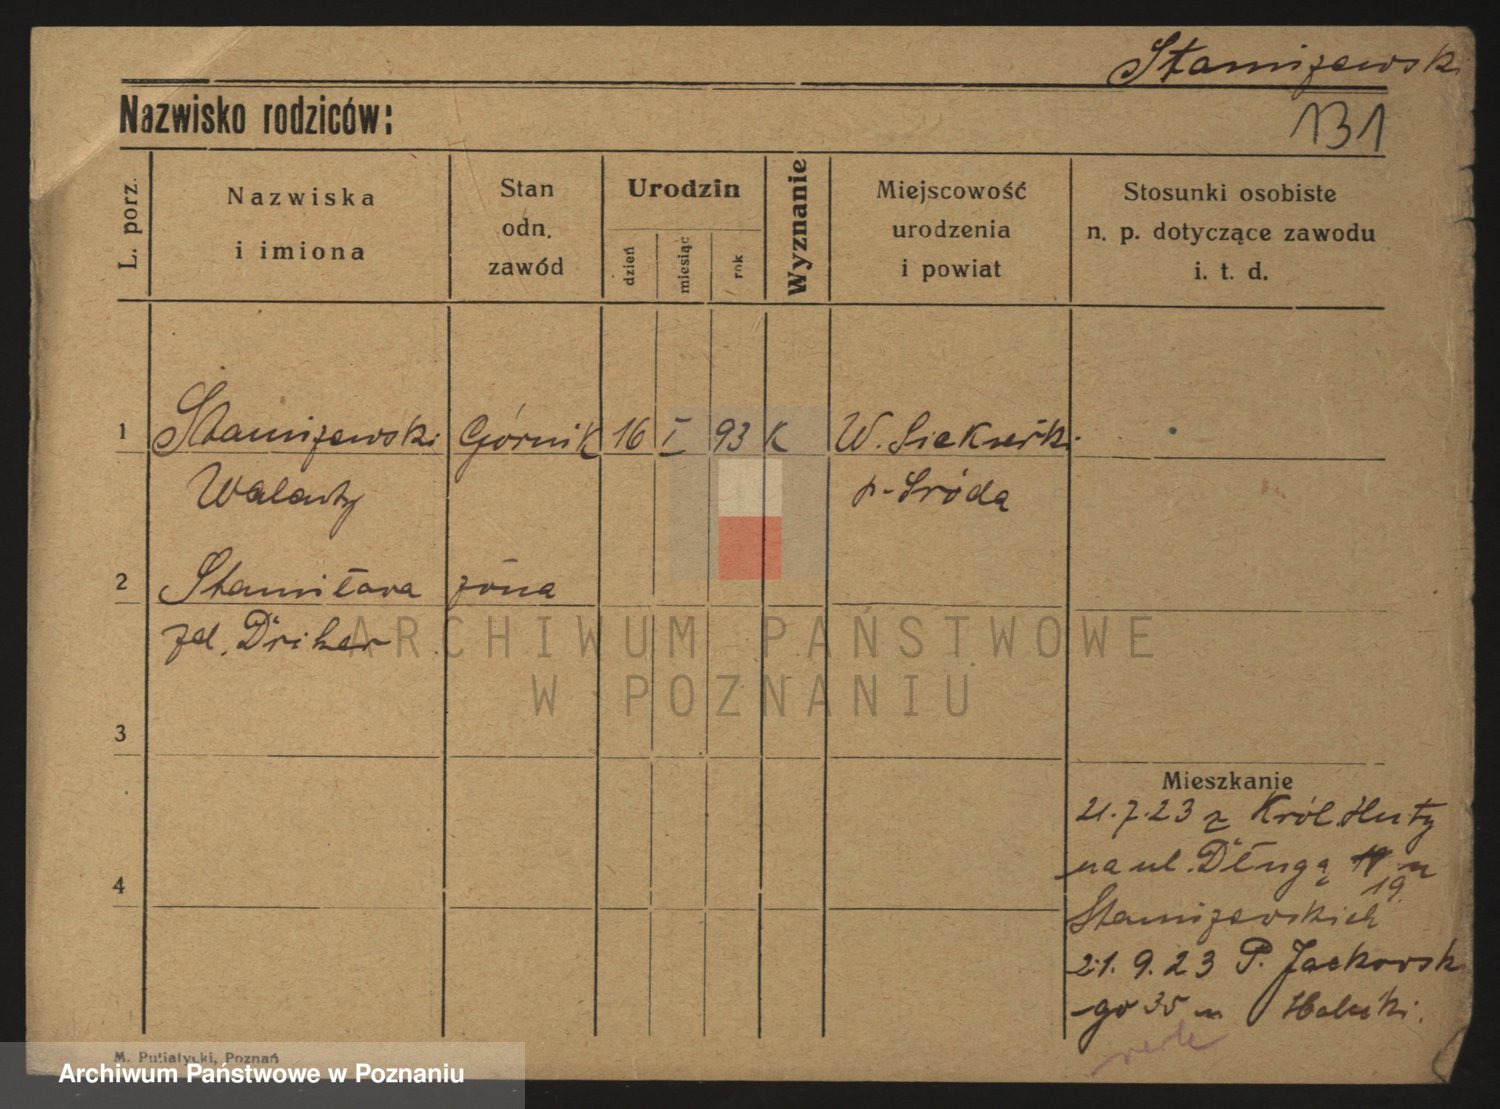 Stamizewski
131
Nazwisko rodziców:
L. porz.
Nazwiska
i imiona
Stan
odn.
zawód
Urodzin
dzień
miesiąc
rok
Wyznanie
Miejscowość
urodzenia
i powiat
Stosunki osobiste
n. p. dotyczące zawodu
i. t. d.
1 Stamizewski Górnik 16 I 93 K W. Siekierki
Walenty p. Środa
2 Stanisława żona
zd.
3
4
Mieszkanie
21.7.23 z Król. Huty
na ul. Długą
19
Stamizewskich
21.9.23 P. Jackowsk
-go 35 m
M. Putiatycki, Poznań
ARCHIWUM PAŃSTWOWE
W POZNANIU
Archiwum Państwowe w Poznaniu